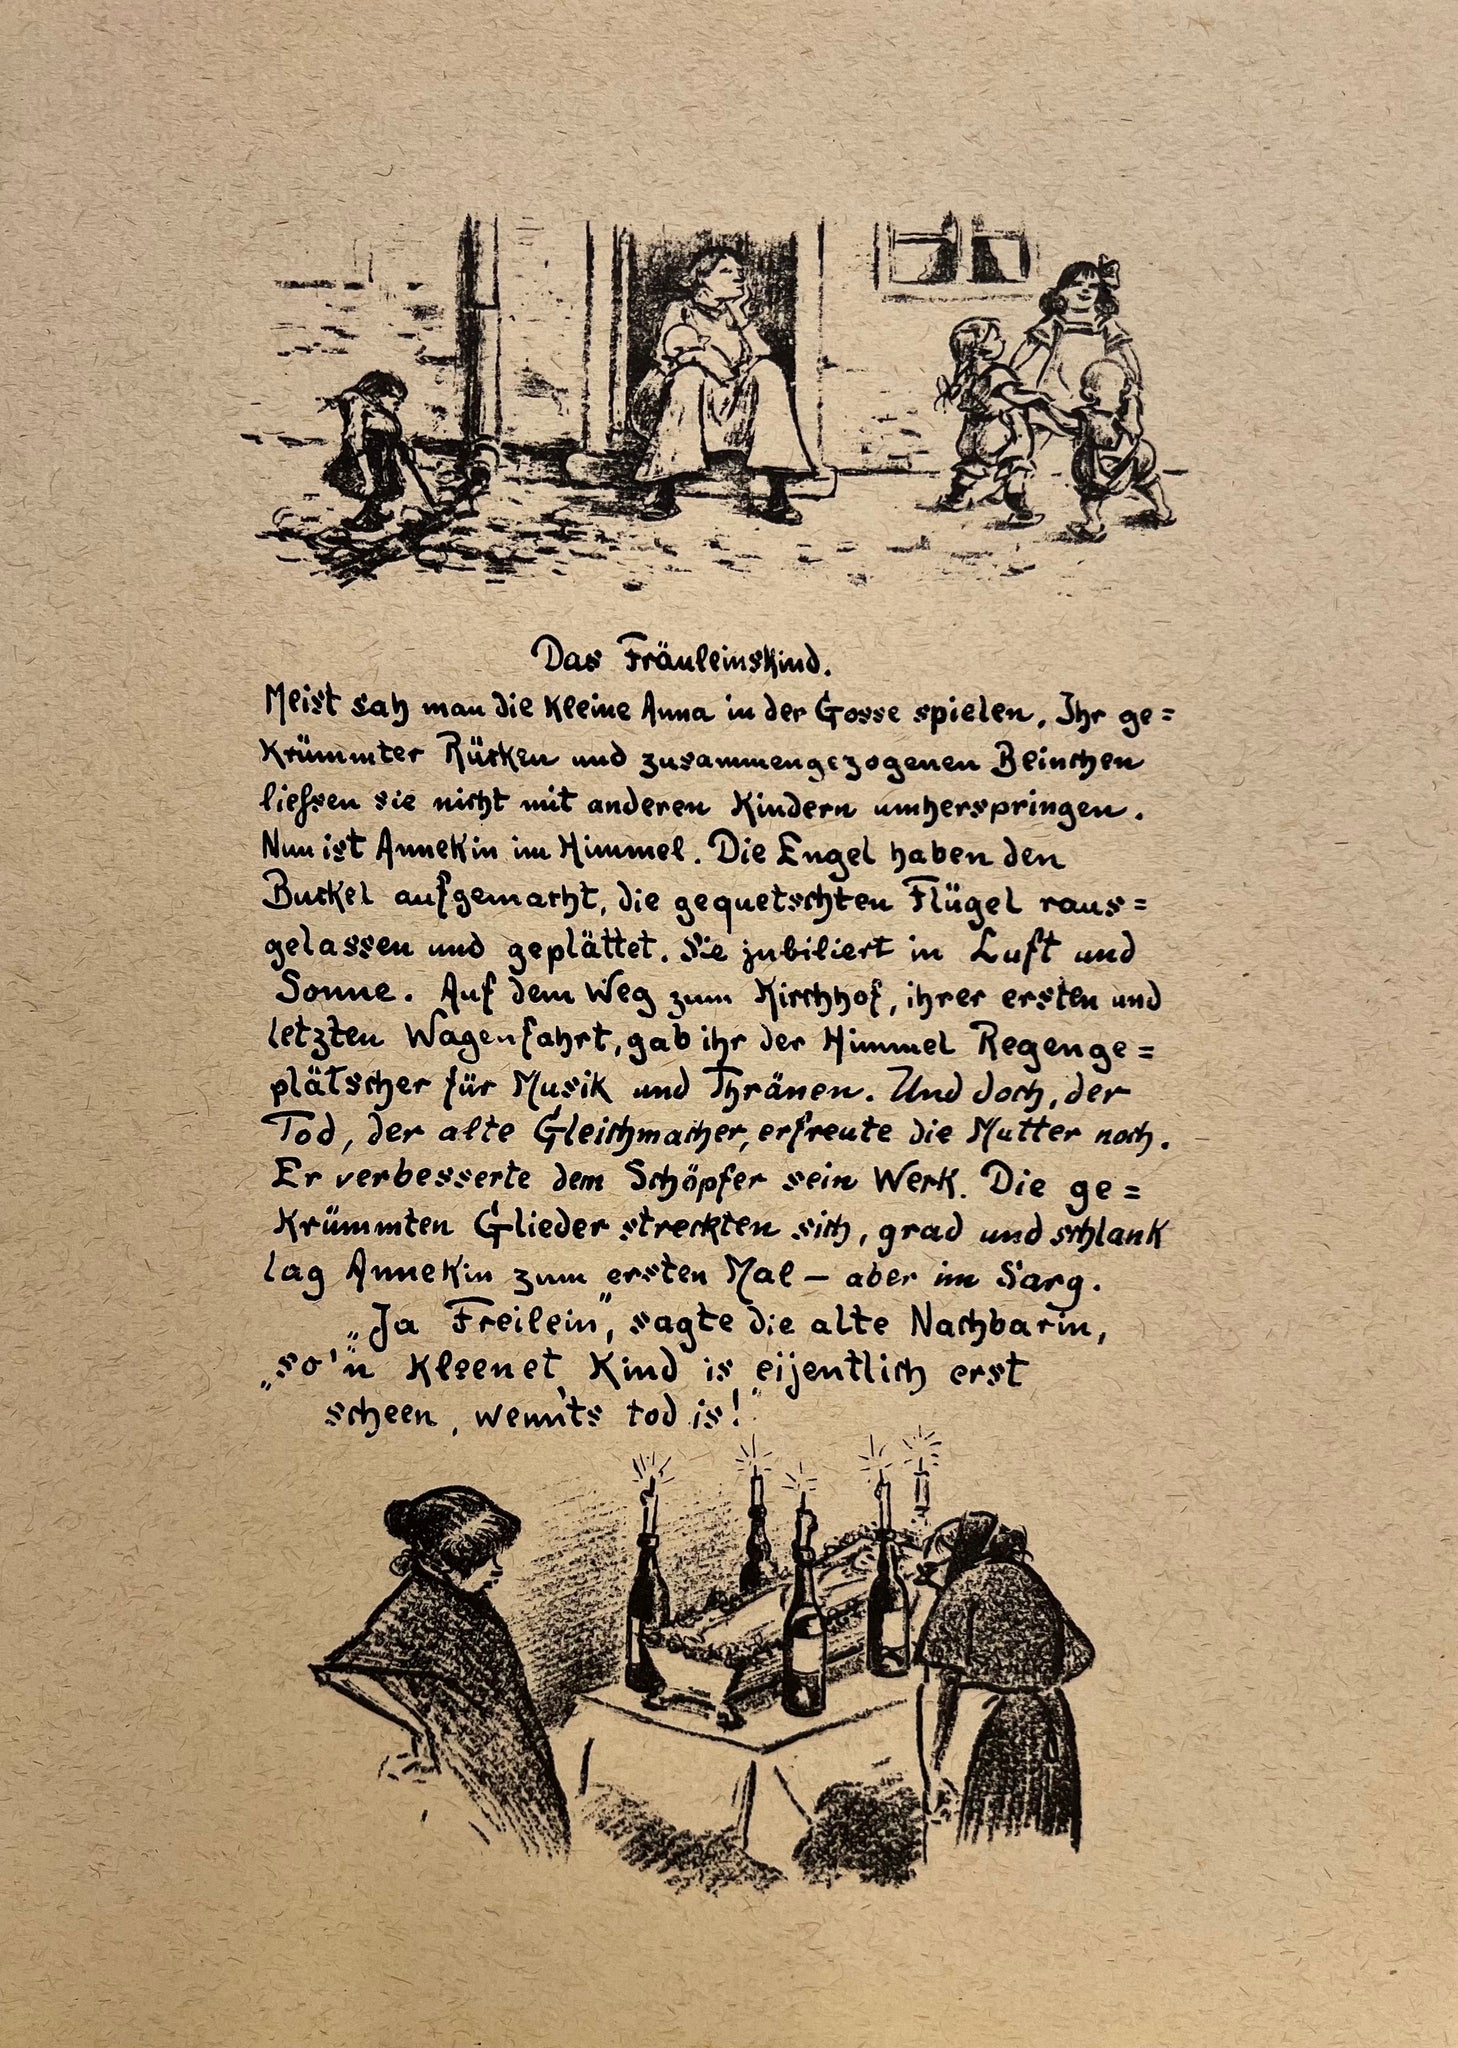 Das Fräuleinskind.
Meist sah man die kleine Anna in der Gosse spielen. Ihr ge=
krümmter Rücken und zusammengezogenen Beinchen
liessen sie nicht mit anderen Kindern umherspringen.
Nun ist Annekin im Himmel. Die Engel haben den
Buckel aufgemacht, die gequetschten Flügel raus=
gelassen und geplättet. Sie jubiliert in Luft und
Sonne. Auf dem Weg zum Kirchhof, ihrer ersten und
letzten Wagenfahrt, gab ihr der Himmel Regenge=
plätscher für Musik und Thränen. Und doch, der
Tod, der alte Gleichmacher, erfreute die Mutter noch.
Er verbesserte dem Schöpfer sein Werk. Die ge=
krümmten Glieder streckten sich, grad und schlank
lag Annekin zum ersten Mal – aber im Sarg.
„Ja Freilein", sagte die alte Nachbarin,
„so'n kleenet Kind is eijentlich erst
scheen, wenn'ts tod is!"